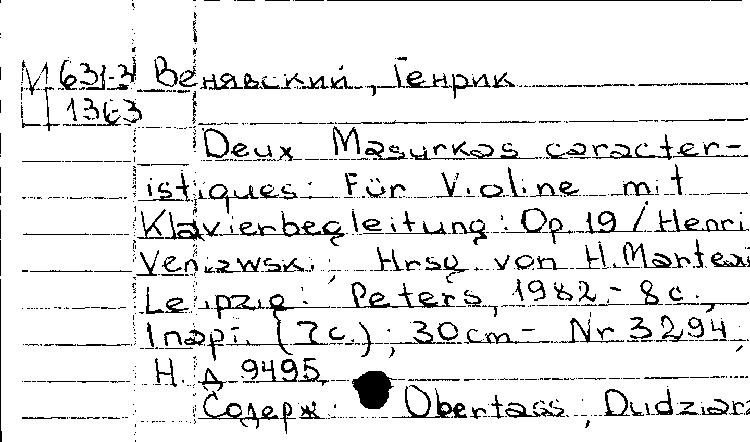 М 631-3 Венявский, Генрик
1363
Deux Masurkas caracter-
istiques: Für Violine mit
Klavierbegleitung: Op 19 / Henri
Veniawski; Hrsg. von H. Martea
Leipzig: Peters, 1982.- 8 с.,
1 парт. (7 с.); 30 cm - Nr 3294,
Н. д 9495.
Содерж: Obertass; Dudziarz